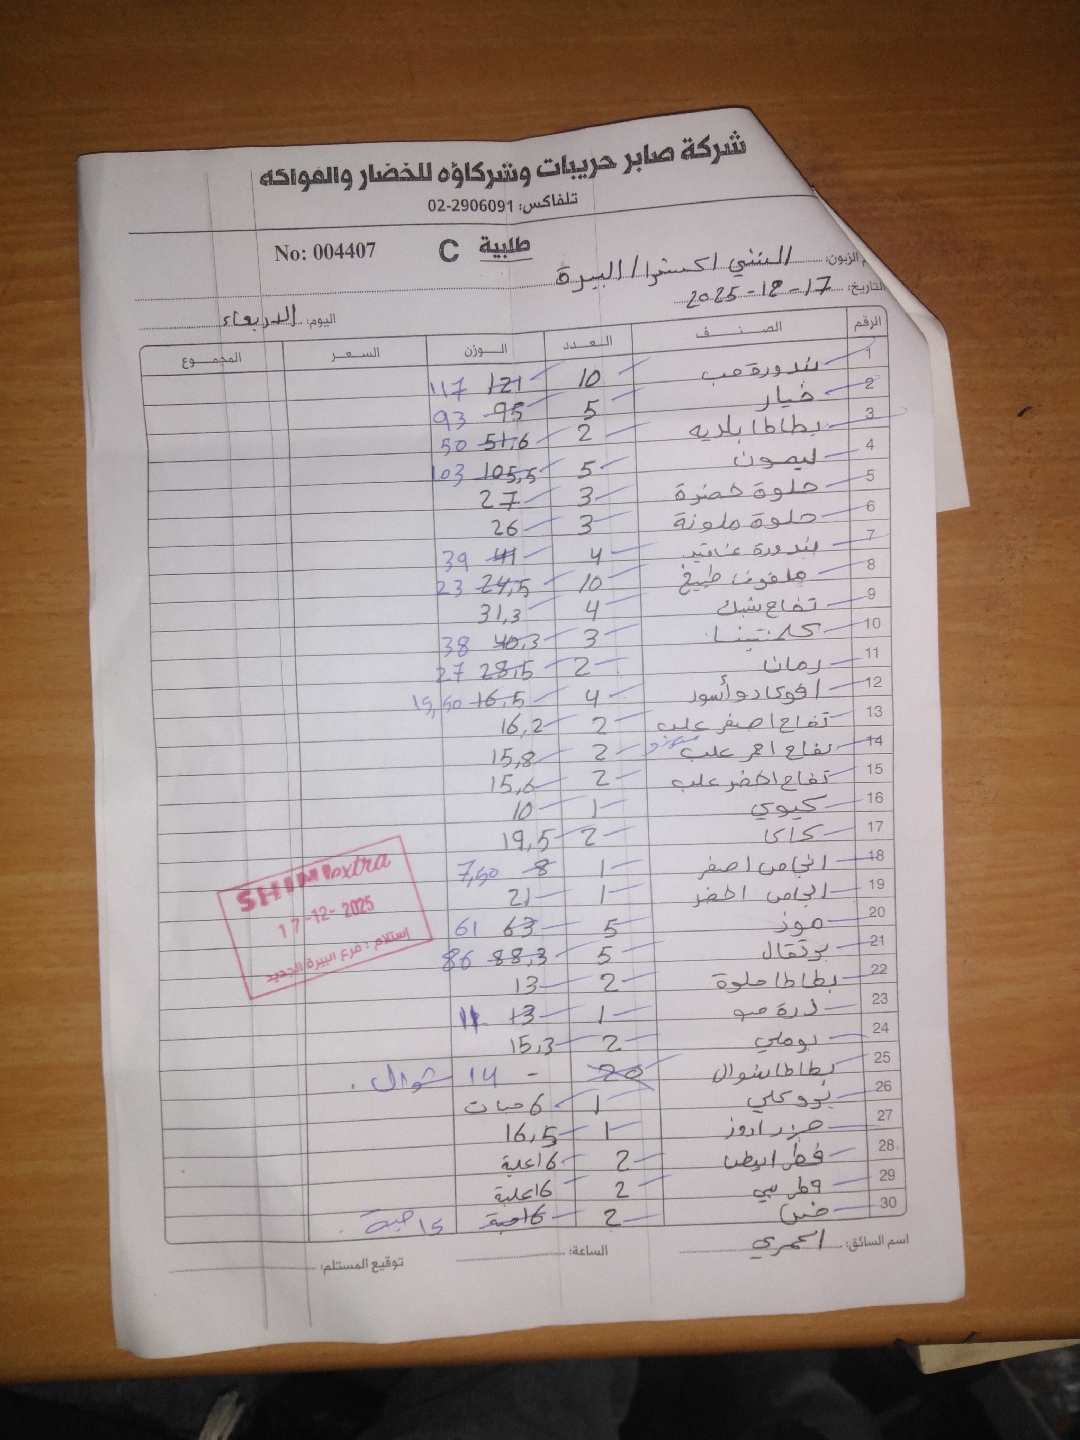 شركة صابر حريبات وشركاؤه للخضار والفواكه
تلفاكس: 02-2906091
No: 004407 C طلبية
م الزبون: الشني اكسترا / البيرة
التاريخ: 17-12-2025
اليوم: الاربعاء
الرقم الصنف العدد الوزن السعر المجموع
1 بندورة حب 10 121 117
2 خيار 5 95 93
3 بطاطا بلديه 2 51,6 50
4 ليمون 5 105,5 103
5 حلوة خضرة 3 27
6 حلوة ملونة 3 26
7 بندورة عناقيد 4 41 39
8 ملفوف طبيخ 10 24,5 23
9 تفاح شبك 4 31,3
10 كلمنتينا 3 40,3 38
11 رمان 2 28,5 27
12 افوكادو أسود 4 16,5 15,50
13 تفاح اصفر علب 2 16,2
14 تفاح احمر علب 2 15,8
15 تفاح اخضر علب 2 15,6
16 كيوي 1 10
17 كاكا 2 19,5
18 انجاص اصفر 1 8 7,50
19 انجاص اخضر 1 21
20 موز 5 63 61
21 برتقال 5 88,3 86
22 بطاطا حلوة 2 13
23 ذرة 1 13 11
24 بوملي 2 15,3
25 بطاطا شوال 20 - 14 شوال.
26 بروكلي 1 6 حبات
27 جزر 1 16,5
28 فطر ابيض 2 16 علبة
29 فطر بني 2 16 علبة
30 خس 2 16 حبة 15 حبة.
SHINI extra
17-12-2025
إستلام: فرع البيرة الجديد
اسم السائق: العمري الساعة: توقيع المستلم: